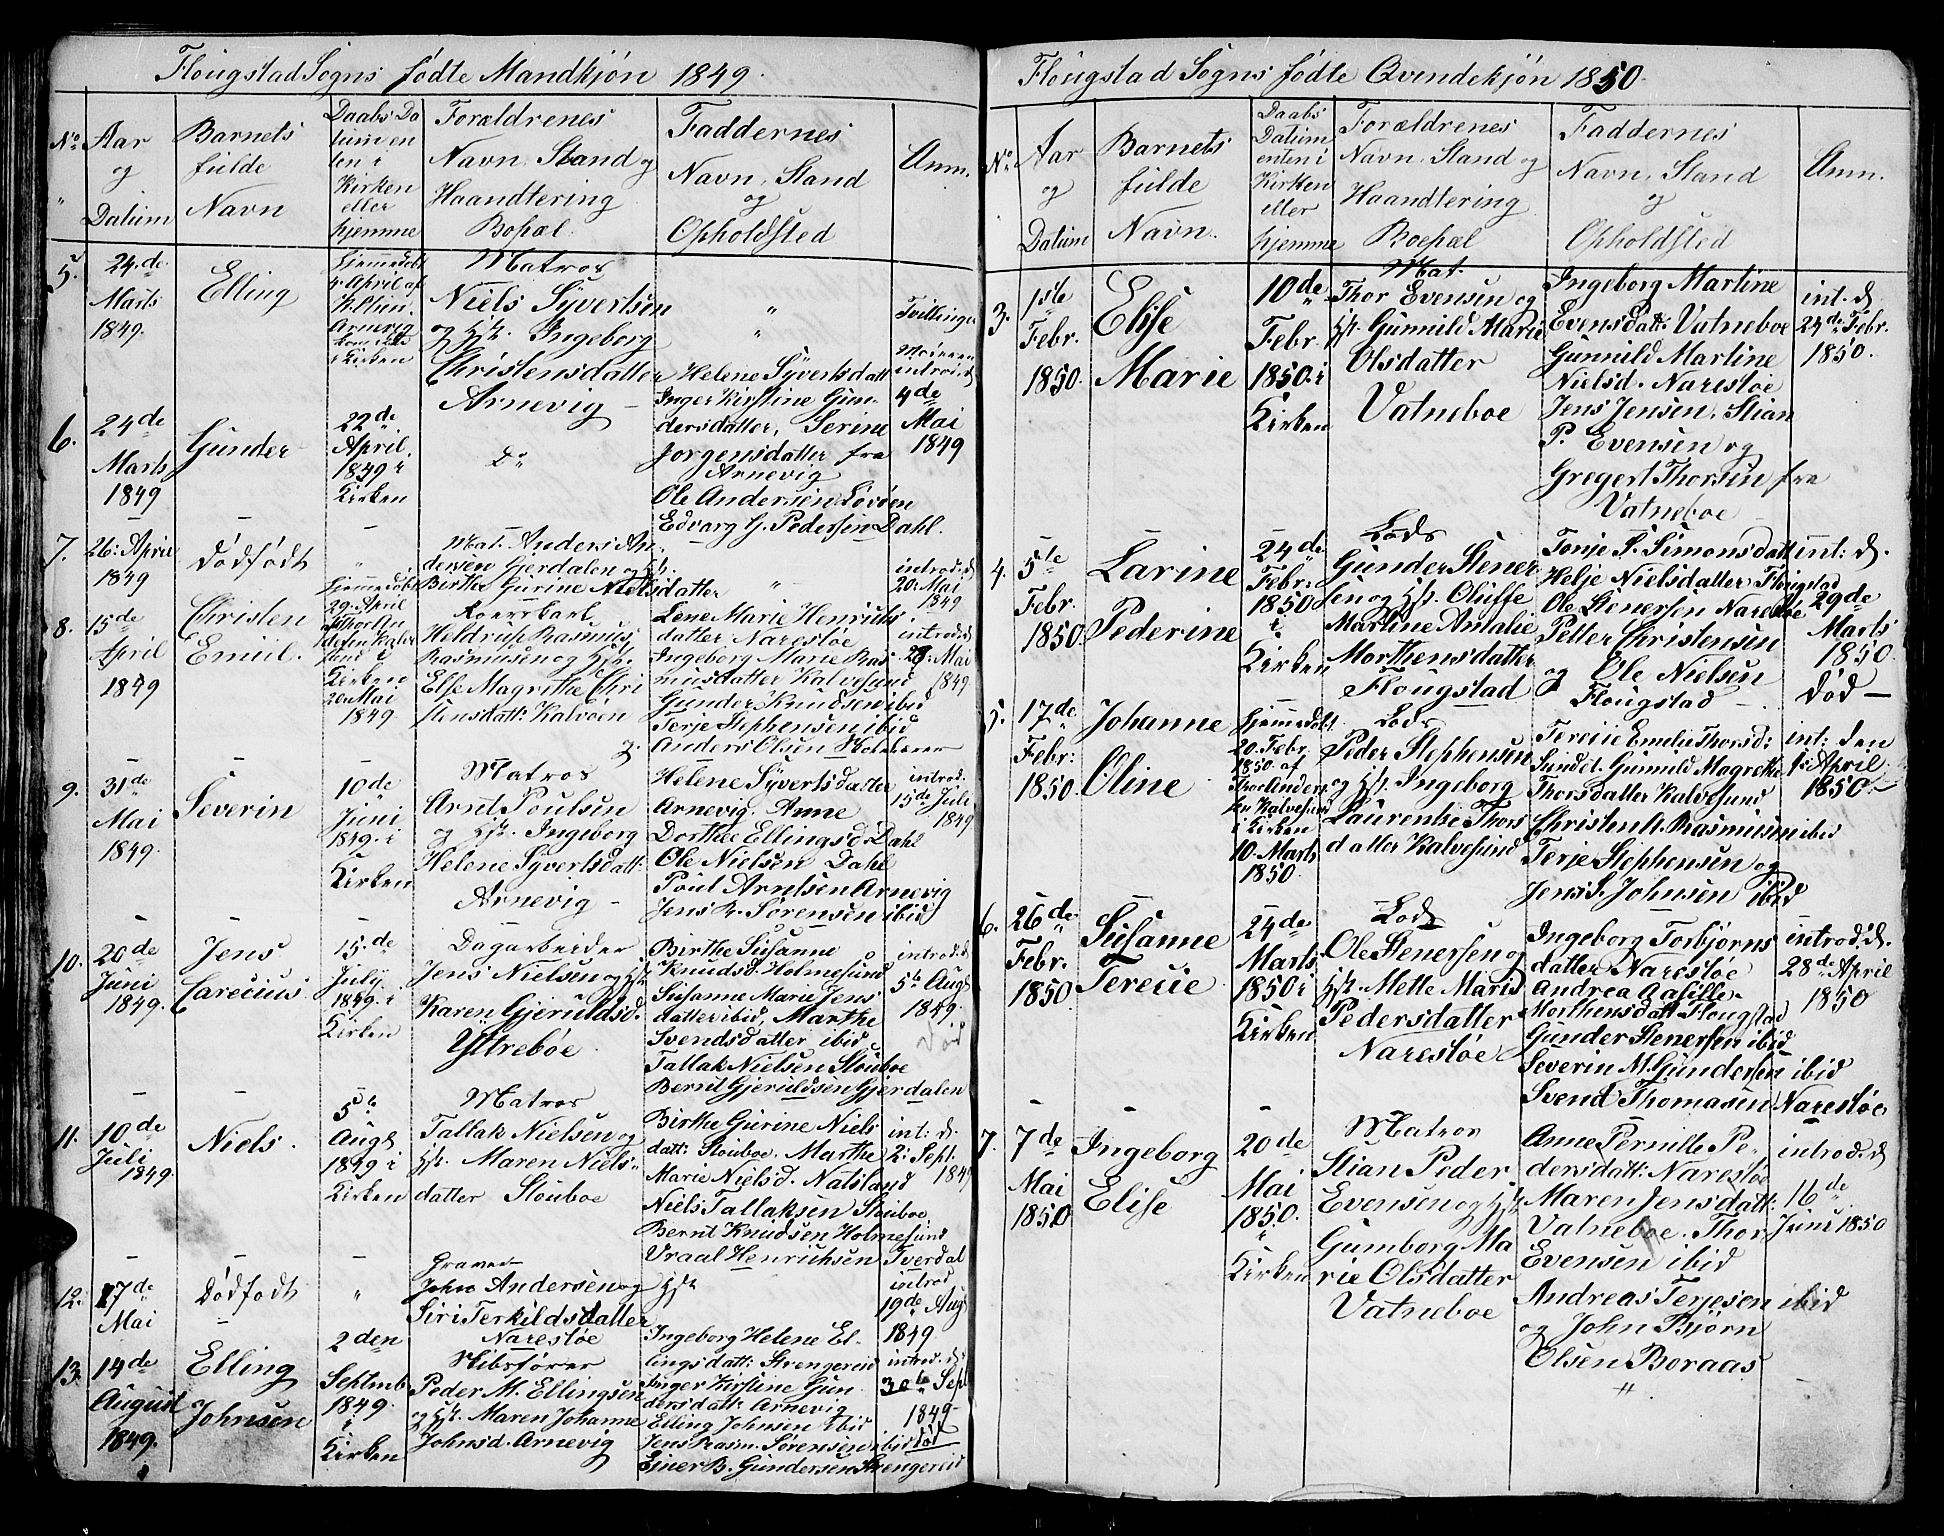 Flougstad Sogns fødte Mandkjøn 1849.
No Aar og Datum
Barnets fulde Navn
Daabs Da
tum en
ten i
Kirken
eller
hjemme
Forældrenes
Navn, Stand og
Haandtering
Bopæl.
Faddernes
Navn, Stand
og
Opholdsted
Anm.
5. 24.de
Marts
1849.
Elling
Hjemmedøbt
April af
Arnevig
Kirken
Matros
Niels Syvertsen
og Hst. Ingeborg
Christensdatter
Arnevig –
"
"
Tvillinger
6. 24de
Marts
1849
Gunder
22de
April.
1849 i
Kirken
Do
Helene Syvertsdatt
Inger Kirstine Gun-
dersdatter, Serine
Jorgensdatter fra
Arnevig
Ole Andersen Løvøen
Edvarg G. Pedersen Dahl.
Moderen
introd. d.
4de
Mai
1849
7. 26: April
1849
Dødfødt
"
Mat. Anders An-
dersen Gjerdalen og Hst.
Birthe Gurine Nielsdatter
"
introd. d.
20: Mai
1849
8. 15de
April
1849
Christen
Emiil.
Hjemmedøbt
29. April
af Thor An
dersen Kalve
sund i
Kirken
20 Mai
1849
Heldrup Rasmus
Rasmusen og Hst.
Else Magrethe Chri
stensdatt: Kalvøen
Lene Marie Henriks
datter Narestøe
Ingeborg Marie Ras-
musdatter Kalvesund
Gunder Knudsen ibid
Terje Stephensen ibid
Anders Olsen
introd. d.
Mai
1849
9. 31de
Mai
1849.
Severin
10de
Juni
1849. i
Kirken
Matros
Arnt Poulsen
og Hst. Ingeborg
Helene Syvertsdatt:
Arnevig –
Helene Syvertsdatter
Arnevig. Anne
Dorthe Ellingsd. Dahl
Ole Nielsen Dahl
Poul Arntsen Arnevig
Jens R. Sørensen ibid
introd.
15de Juli
1849
10. 20de
Juni
1849.
Jens
Carecius
15.de
July
1849. i
Kirken
Dagarbeider
Jens Nielsen og Hst.
Karen Gjeruldsd.
Yttrebøe.
Birthe Susanne
Knudsd. Holmesund
Susanne Marie Jens
datter ibid, Marthe
Svendsdatter ibid
Tallak Nielsen Stouboe
Bernt Gjeruldsen Gjerdalen
introd. d.
5te Aug
1849.
Død
11. 10de
Juli
1849.
Niels.
5te
Augs
1849 i
Kirken
Matros
Tallak Nielsen og
Hst. Maren Niels-
datter Stouboe
Birthe Gurine Niels
datt: Stouboe. Marthe
Marie Nielsd. Natsland
Niels Tallaksen Stouboe
Bernt Knudsen Holmesund
Vraal Henriksen Tverdal
int. d.
2: Sept.
1849
12. 17de
Mai
Dødfødt
–
"
John Andersen og Hst.
Siri Terkildsdatter
Narestøe
introd
19de Augs
1849
13. 14de
August
1849.
Elling
Johnsen
2den
Septemb
1849.
i
Kirken
Skibsfører
Peder M. Ellingsen
og Hst. Maren Johanne
Johnsd. Arnevig
Ingeborg Helene El-
lingsdatt: Strengereid
Inger Kirstine Gun
dersdatt: Arnevig
Elling Johnsen ibid
Jens Rasm. Sørensen ibid
Ejner B. Gundersen Strengereid
introd. d.
30te Sept
1849–
død
Flougstad Sogns fødte Qvindekjøn 1850.
No. Aar
og
Datum
Barnets
fulde
Navn.
Daabs
Datum
enten i
Kirken
eller
hjemme
Forældrenes
Navn, Stand og
Haandtering
Boepæl
Faddernes
Navn, Stand
og
Opholdsted
Anm.
3. 1ste
Febr.
1850.
Elise
Marie
10de
Febr.
1850. i
Kirken
Mat.
Thor Evensen og
Hst. Gunnild Marie
Olsdatter
Vatneboe
Ingeborg Martine
Evensdatt: Vatneboe
Gunnild Martine
Nielsd. Narestøe
Jens Jensen, Stian
P. Evensen og
Gregert Thorsen fra
Vatneboe
int. d.
24de Febr.
1850.
4. 5te
Febr.
1850.
Larine
Pederine
24de
Febr.
1850
i
Kirken
Lods
Gunder Stener
sen og Hst. Oluffe
Martine Amalie
Morthensdatter
Flougstad
Tonje S. Simonsdatt
Helje Nielsdatter Flougstad
Ole Stenersen Narestøe
Petter Christensen
og Ole Nielsen
Flougstad –
int: d.
29de
Marts
1850.
død –
5. 17de
Febr:
1850.
Johanne
Oline
Hjemmedøbt
20. Febr.
1850. af
Thor Anders
sen Kalvesund
i Kirken
10. Marts
1850.
Lods
Peder Stephensen
og Hst. Ingeborg
Laurenthe Thors
datter Kalvesund
Teresie Emilie Thorsd:
Sundet. Gunnild Magrethe
Thorsdatter Kalvesund
Christen A. Rasmusen ibid
Terje Stephensen og
Jens S. Johnsen ibid
int: den
1ste April
1850.–
6. 26de
Febr.
1850
Susanne
Teresie
24de
Marts
1850 i
Kirken
Lods
Ole Stenersen og
Hst. Mette Marie
Pedersdatter
Narestøe
Ingeborg Torbjørns
datter Narestøe
Andrea Aasille
Morthensdatt Flougstad
Gunder Stenersen ibid
Severin M. Gundersen ibid
Svend Thomasen Narestøe
introd: d.
28de April
1850
7. 7de
Mai
1850
Ingeborg
Elise
20de
Mai
1850.
i
Kirken
Matros
Stian Peder
Evensen og Hst.
Gumborg Ma
rie Olsdatter
Vatneboe
Anne Pernille Pe-
dersdatt: Narestøe
Maren Jensdatt:
Vatneboe. Thor
Evensen ibid
Andreas Terjesen ibid
og John Bjørn
Olsen Boraas
introd. d.
16de
Juni 1850